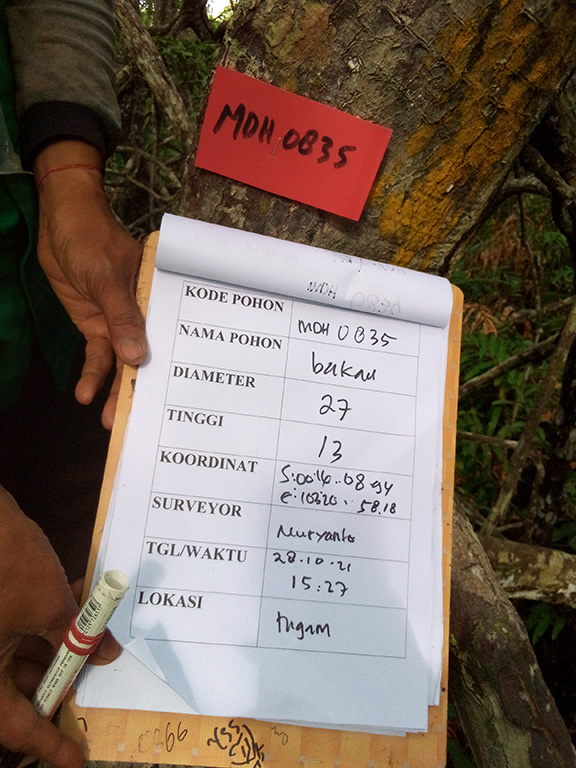 MDH 0835
MDH 0836
KODE POHON MDH 0835
NAMA POHON bakau
DIAMETER 27
TINGGI 13
KOORDINAT S:0016..08 94
e:10320. 58.18
SURVEYOR Nuryanto
TGL/WAKTU 28.10.21
15:27
LOKASI